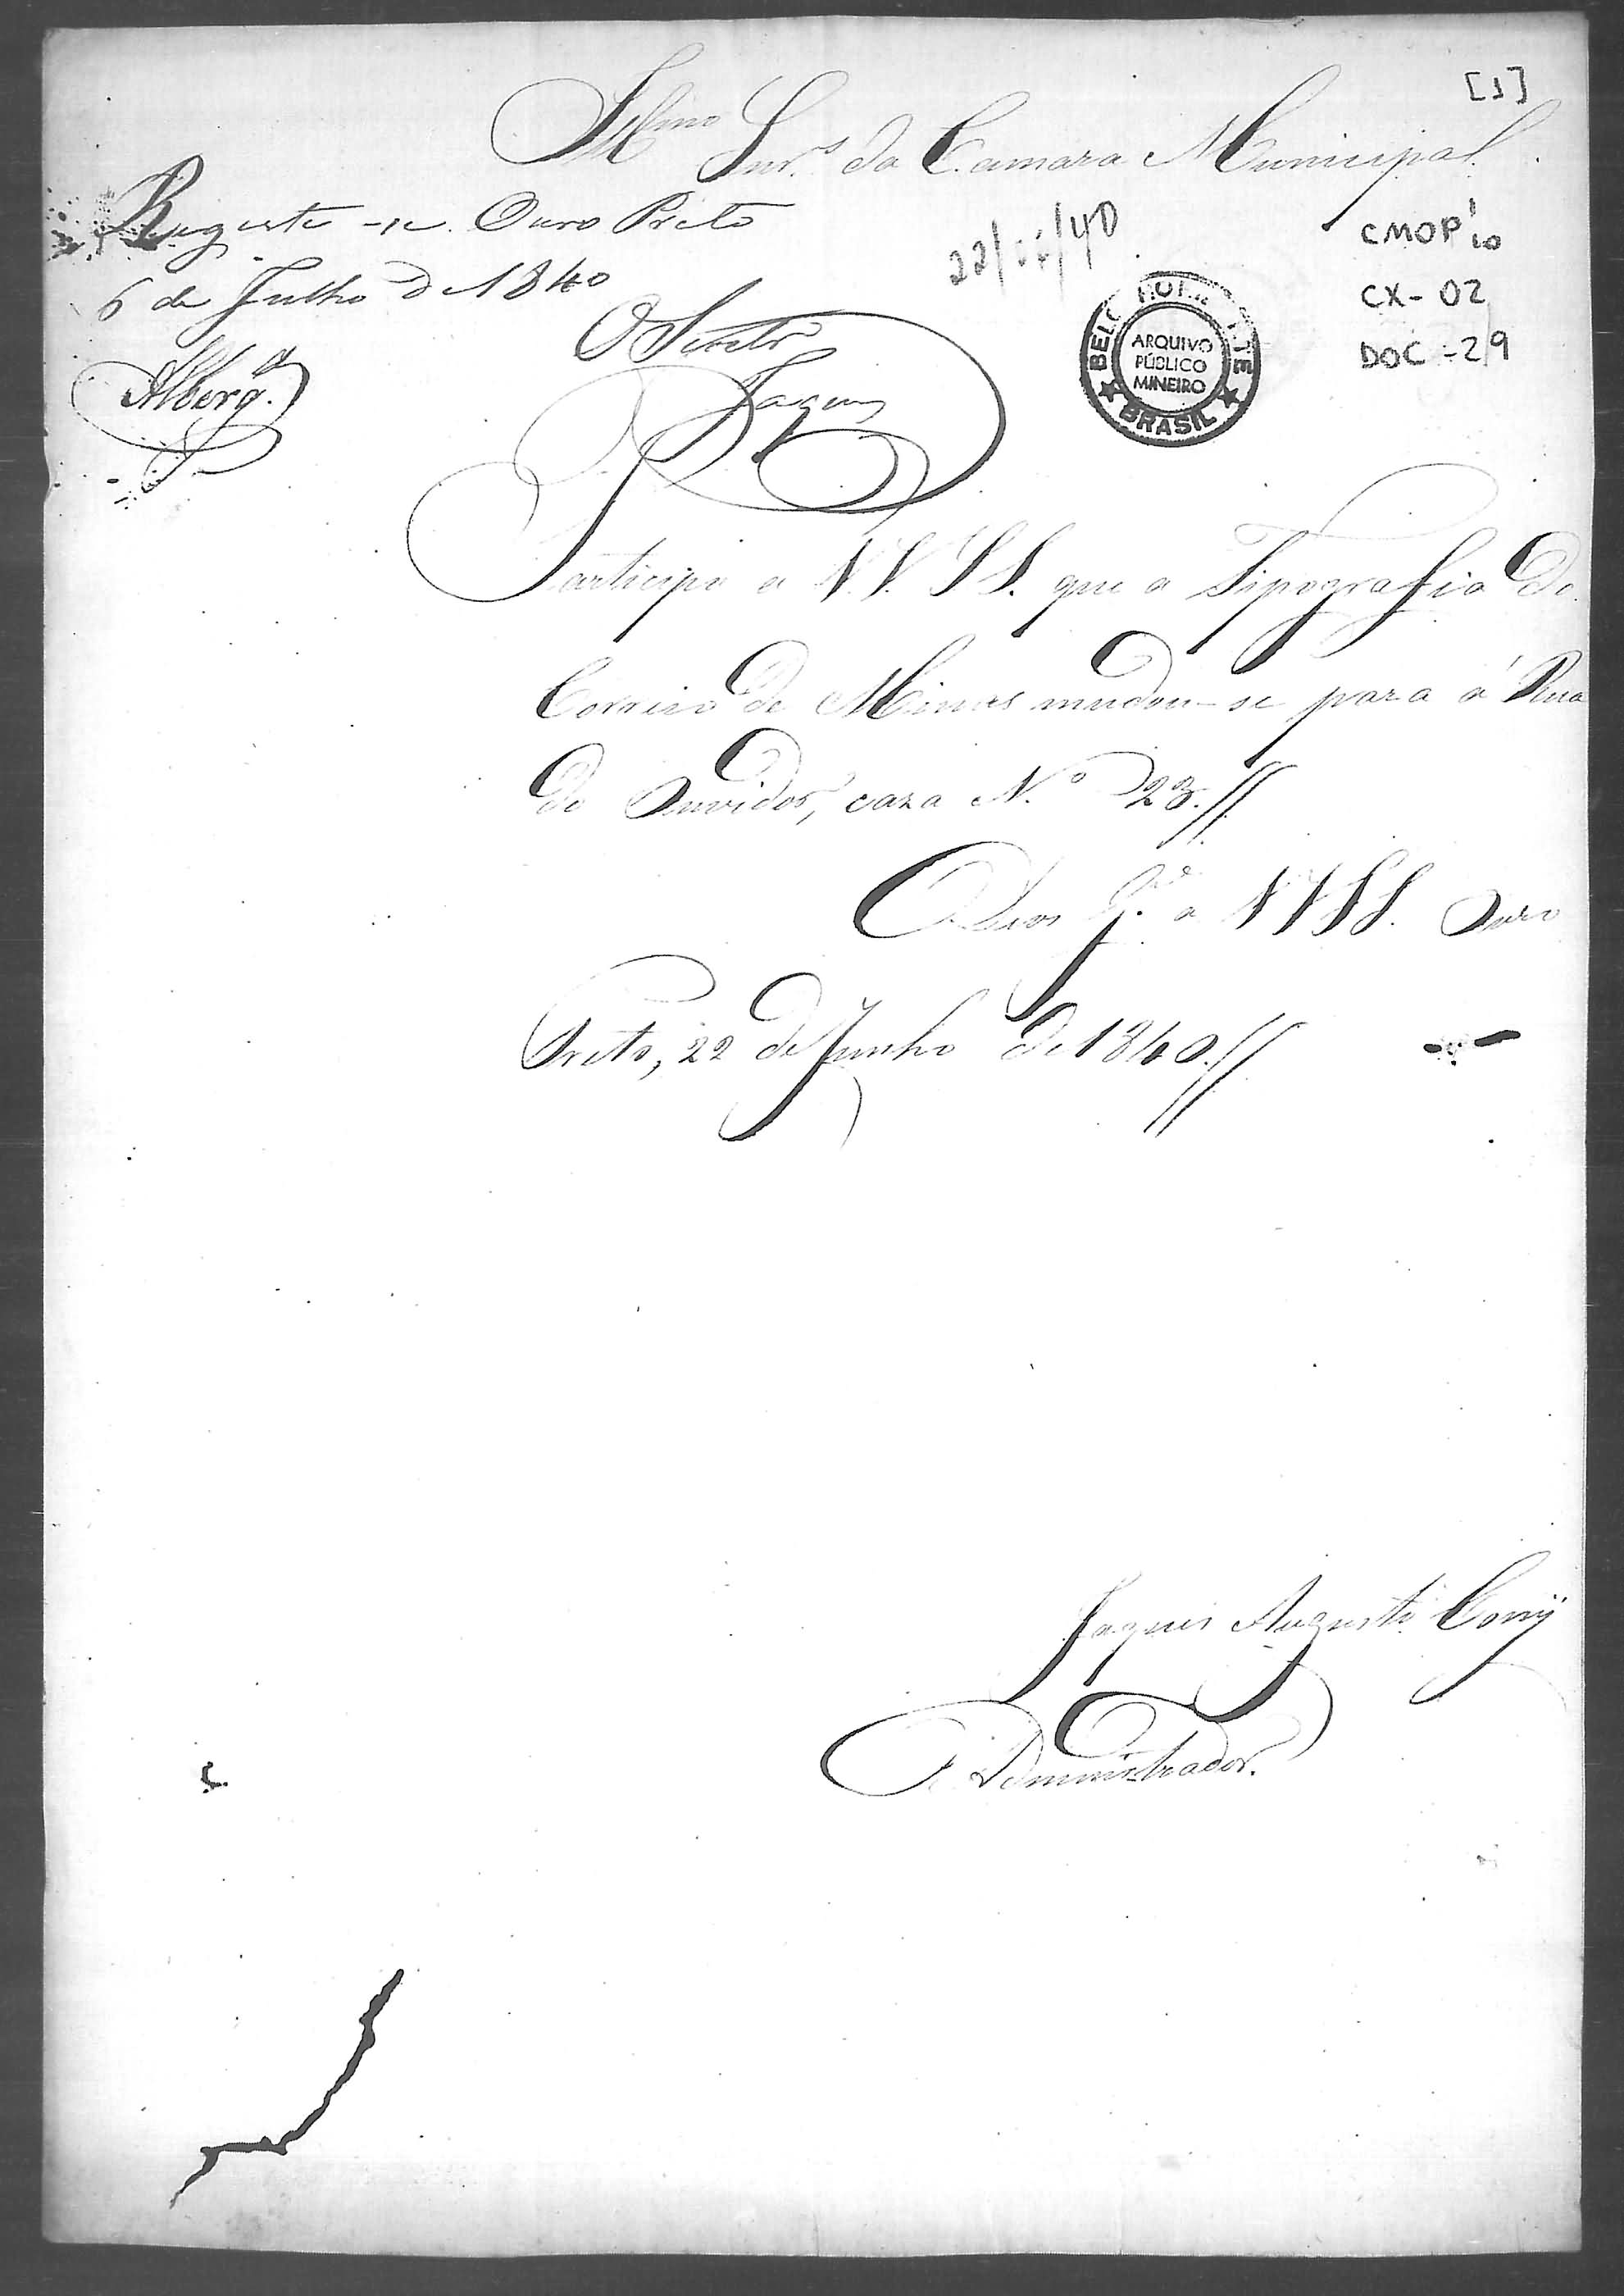 [1]
Illmos Snrs. da Camara Municipal.
Registe-se. Ouro Preto
6 de Julho de 1840
Alberga.
22/06/40
CMOP 1/10
CX - 02
DOC - 29
BELO HORIZONTE
ARQUIVO
PÚBLICO
MINEIRO
BRASIL
Participo a V. V. S S. que a Tipografia do
Correio de Minas mudou-se para á Rua
do Ouvidor, caza N.º 23.//
Deos G.de a V V S S. Ouro
Preto, 22 de Junho de 1840.//
Jaques Augusto Cony
Administrador.